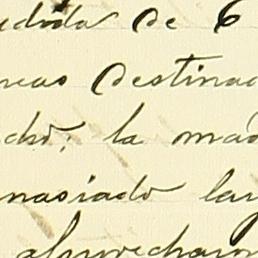 dida de 6
neas destinad
cho; la mad
masiado lar
aprovecham